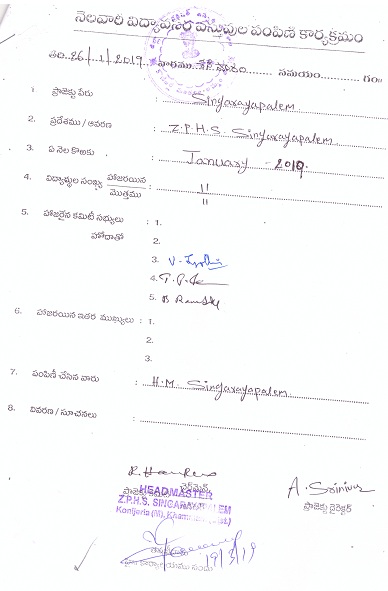 నెలవారి విద్యావసర వస్తువుల పంపిణి కార్యక్రమం
తేది. 26/1/2019 వారము సమయం గం॥
1. ప్రాజెక్టు పేరు : Singarayapalem
2. ప్రదేశము / ఆవరణ : Z.P.H.S. Singarayapalem.
3. ఏ నెల కొఱకు : January - 2019.
4. విద్యార్థుల సంఖ్య హాజరయిన : 11
మొత్తము 11
5. హాజరైన కమిటీ సభ్యులు : 1.
హోదాతో 2.
3. V.
4. T.
5. B
6. హాజరయిన ఇతర ముఖ్యులు : 1.
2.
3.
7. పంపిణీ చేసిన వారు : H.M. Singarayapalem.
8. వివరణ / సూచనలు :
A. Srinivas
ప్రాజెక్టు చైర్మెన్
ప్రాజెక్టు డైరెక్టర్
HEADMASTER
Z.P.H.S. SINGARAYAPALEM
Konijerla (M), Khammam (Dist.)
19/3/19